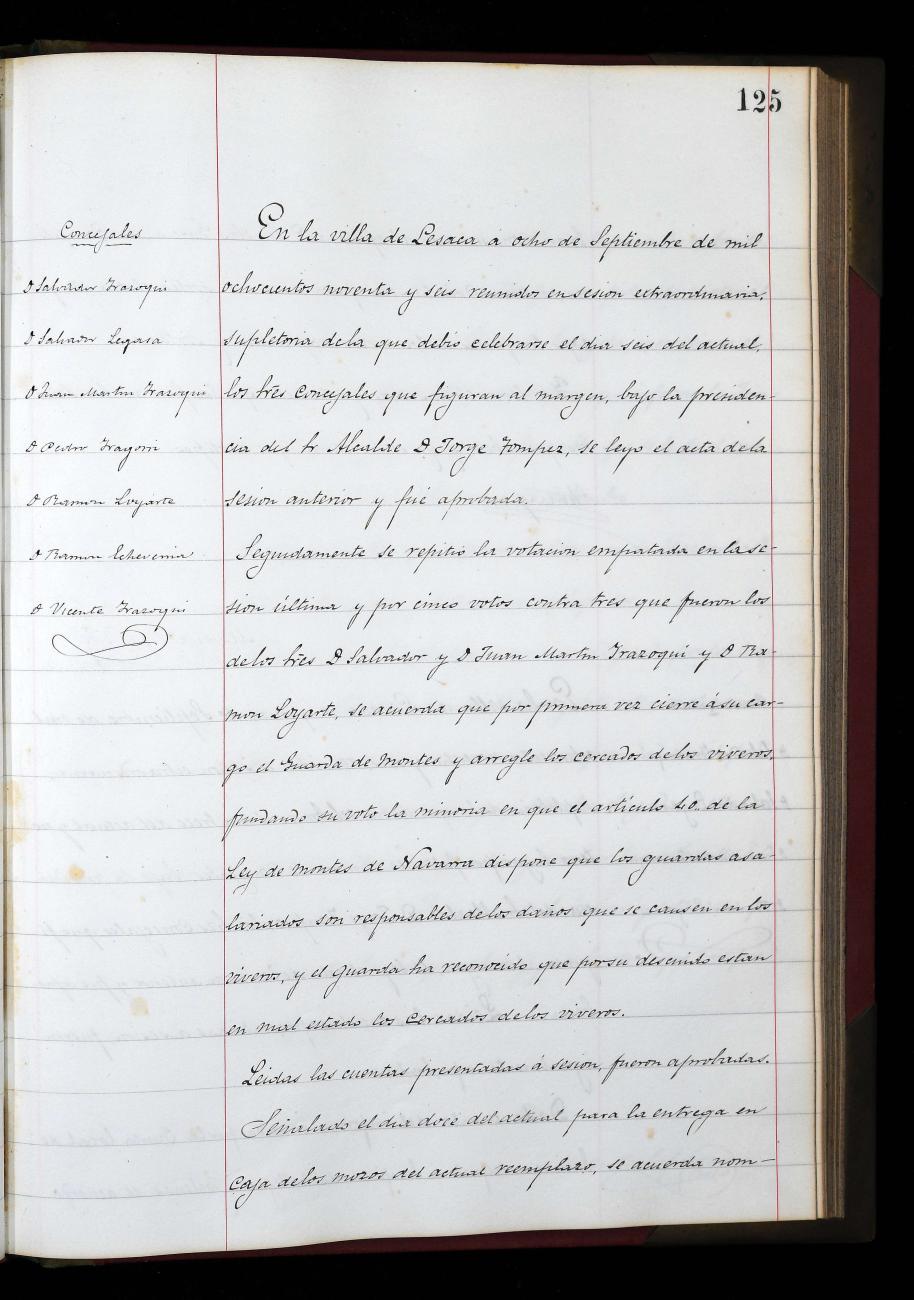 125
Concejales
D Salvador Irazoqui
D Salvador Legasa
D Juan Martin Irazoqui
D Pedro Iragorri
D Ramon Loyarte
D Ramon Echeverria
D Vicente Irazoqui
En la villa de Lesaca a ocho de Septiembre de mil
ochocientos noventa y seis reunidos en sesion extraordinaria,
supletoria de la que debio celebrarse el dia seis del actual,
los Sres Concejales que figuran al margen, bajo la presiden-
cia del Sr Alcalde D Jorge, se leyo el acta de la
sesion anterior y fué aprobada.
Seguidamente se repitio la votacion empatada en la se-
sion última y por cinco votos contra tres que fueron los
de los Sres D Salvador y D Juan Martin Irazoqui y D Ra-
mon Loyarte, se acuerda que por primera vez cierre á su car-
go el Guarda de Montes y arregle los cercados de los viveros,
fundando su voto la minoria en que el artículo 40. de la
Ley de Montes de Navarra dispone que los guardas asa-
lariados son responsables de los daños que se causen en los
viveros, y el guarda ha reconocido que por su descuido estan
en mal estado los cercados de los viveros.
Leidas las cuentas presentadas á sesion, fueron aprobadas.
Señalado el dia doce del actual para la entrega en
Caja de los mozos del actual reemplazo, se acuerda nom-